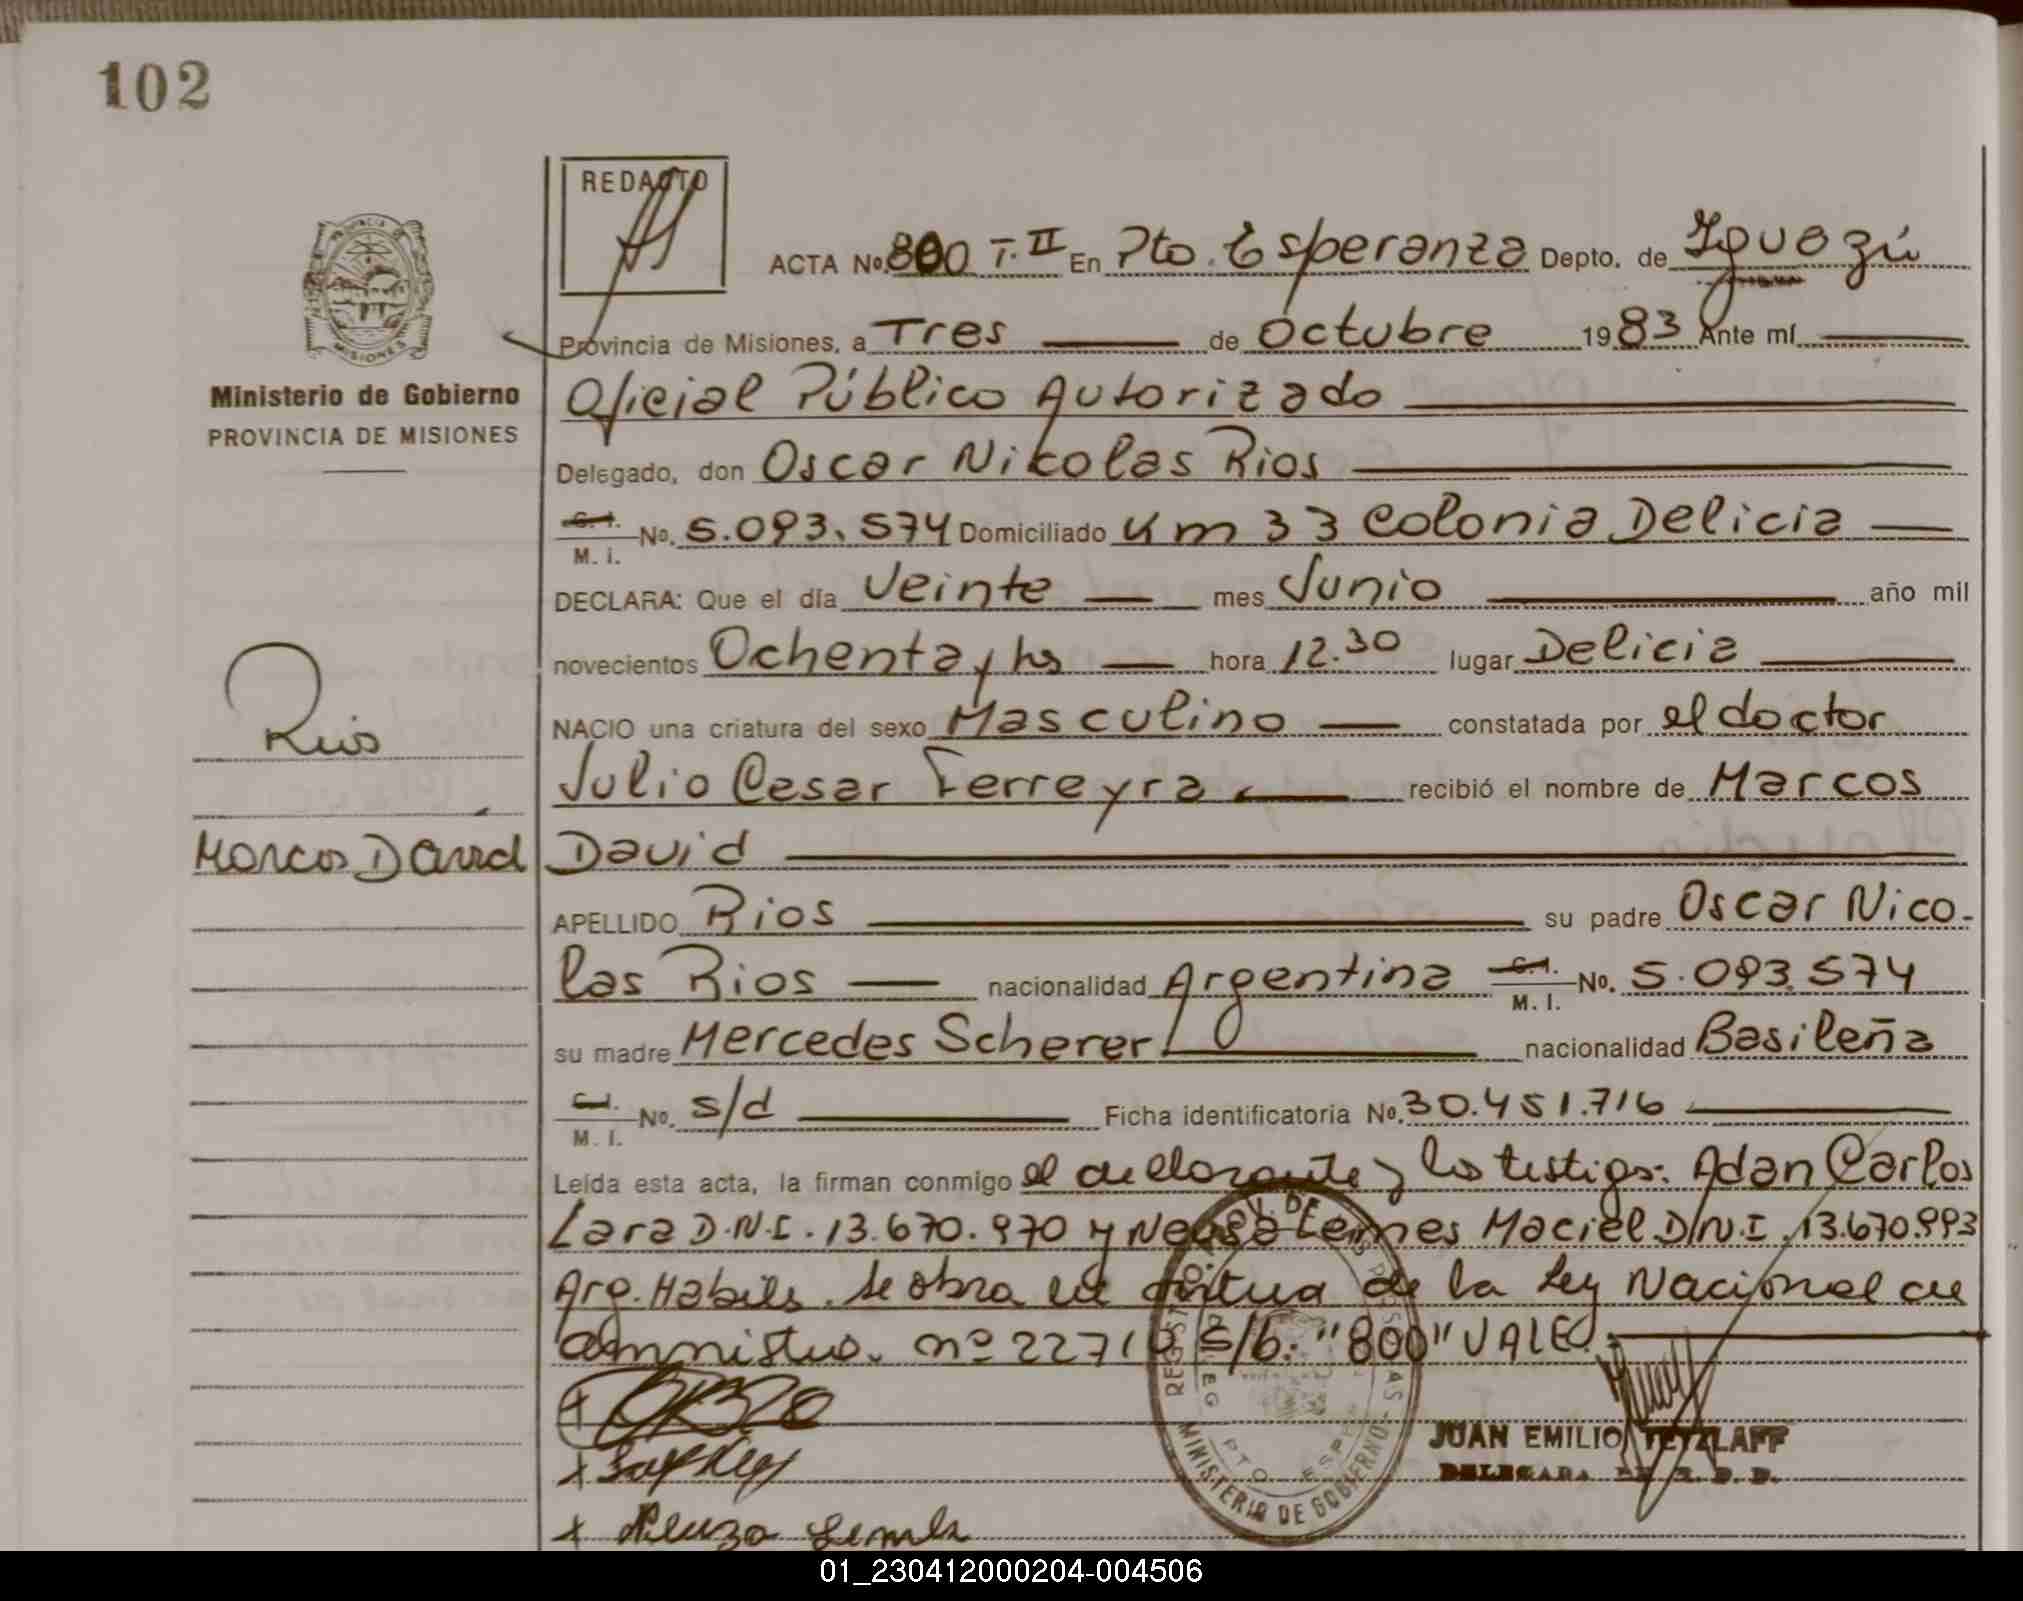 102
REDACTO
ACTA No. 800 T. II En Pto. Esperanza Depto. de Iguazú
Provincia de Misiones, a Tres de Octubre 1983 Ante mí
Ministerio de Gobierno
PROVINCIA DE MISIONES
Oficial Público Autorizado
Delegado, don Oscar Nikolas Rios
C. I. M. I. No. 5.093.574 Domiciliado Km 33 Colonia Delicia
DECLARA: Que el día Veinte mes Junio año mil
novecientos Ochenta y tres hora 12.30 lugar Delicia
NACIO una criatura del sexo Masculino constatada por el doctor
Rios
Julio Cesar Ferreyra recibió el nombre de Marcos
Marcos David
David
APELLIDO Rios su padre Oscar Nico-
las Rios nacionalidad Argentina C. I. M. I. No. 5.093.574
su madre Mercedes Scherer nacionalidad Basileña
C. I. M. I. No. s/d Ficha identificatoria No. 30.451.716
Leída esta acta, la firman conmigo el declarante y los testigos: Adan Carlos
Lara D.N.I. 13.670.970 y Neusa Lemes Maciel D.N.I. 13.670.993
Arg. Habils. Se obra en virtud de la Ley Nacional de
amnistia. nº 22710 S/b: "800" VALE.
JUAN EMILIO TETZLAFF
DELEGADA DE R. D. P.
MINISTERIO DE GOBIERNO
01_230412000204-004506